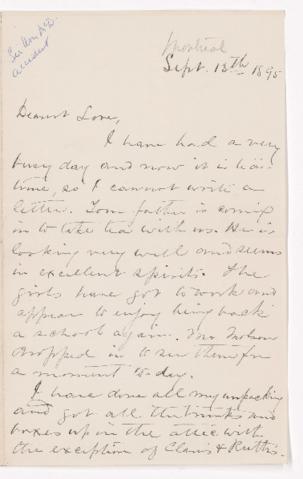 Sir Wm
accident
Montreal
Sept. 13th 1895
Dearest Love,
I have had a very
busy day and now it is tea-
time, so I cannot write a
letter. Your father is coming
in to take tea with us. He is
looking very well and seems
in excellent spirits. The
girls have got to work and
appear to enjoy being back
a school again. Mrs Molson
dropped in to see them for
a moment to-day.
I have done all my unpacking
and got all the trunks and
boxes up in the attic with
the exception of Clare & Ruth's.